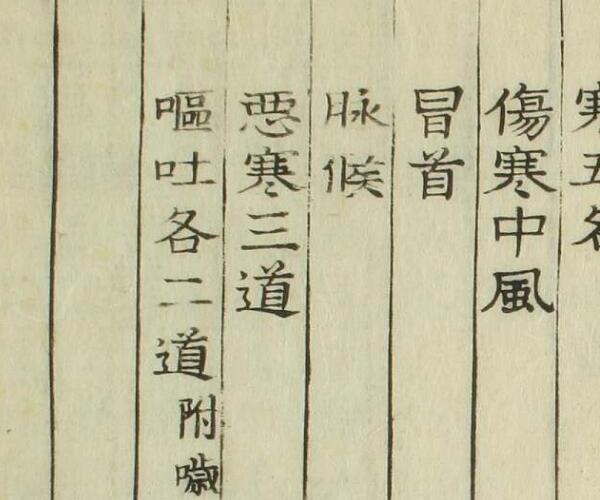 寒五各
傷寒中風
冒首
脉候
惡寒三道
嘔吐各二道附噦